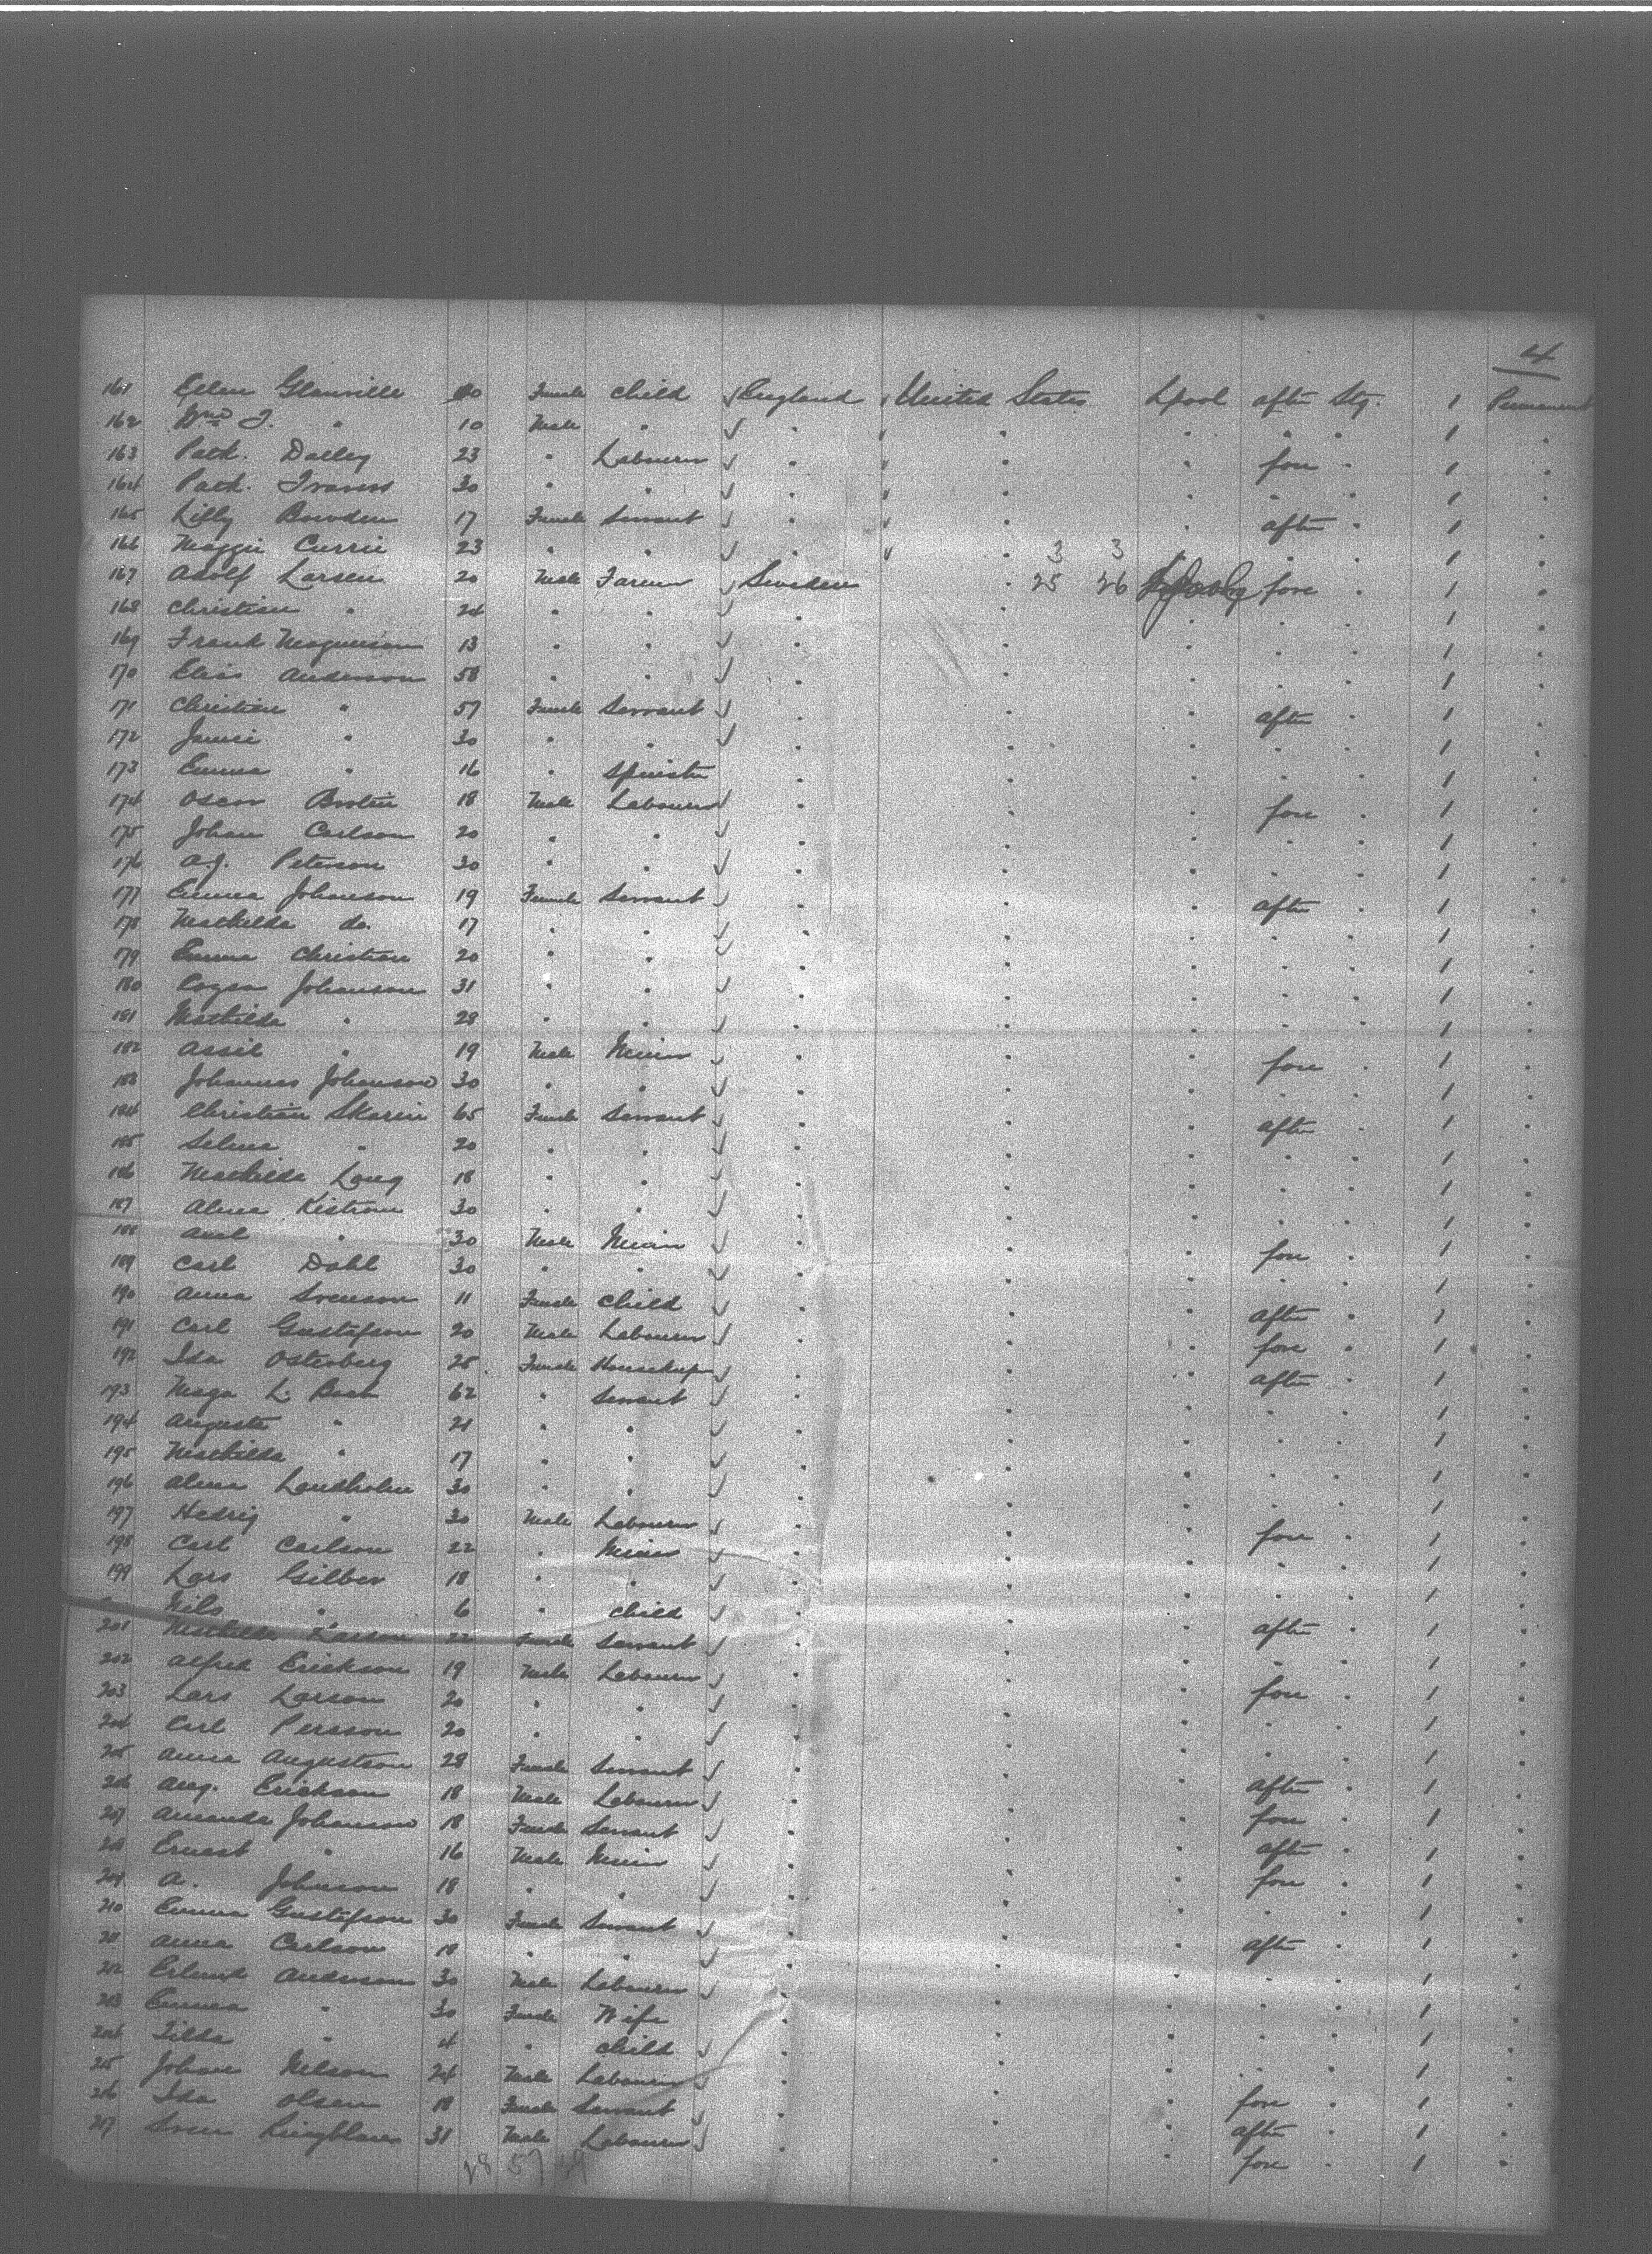 4
161 Ellen Glanville 10 Female Child England United States Lpool after Stg. 1 Permanent
162 Wm J. " 10 Male " " " " " " 1 "
163 Patk. Dalley 23 " Labourer " " " fore " 1 "
164 Patk. Travers 30 " " " " " " " 1 "
165 Lilly Bowden 17 Female Servant " " " after " 1 "
166 Maggie Currie 23 " " " " 3 3 " " " 1 "
167 Adolf Larsen 20 Male Farmer Sweden " 25 26 fore " 1 "
168 Christian " 24 " " " " " " " 1 "
169 Frank Magnuson 13 " " " " " " " 1 "
170 Elias Anderson 58 " " " " " " " 1 "
171 Christian " 57 Female Servant " " " after " 1 "
172 " 30 " " " " " " " 1 "
173 Emma " 16 " Spinster " " " " " 1 "
174 Oscar Brolin 18 Male Labourer " " " fore " 1 "
175 Johan Carlson 20 " " " " " " " 1 "
176 A.J. Peterson 30 " " " " " " " 1 "
177 Emma Johanson 19 Female Servant " " " after " 1 "
178 Mathilda do. 17 " " " " " " " 1 "
179 Emma Christian 20 " " " " " " " 1 "
180 Johanson 31 " " " " " " " 1 "
181 Mathilda " 28 " " " " " " " 1 "
182 Assil " 19 Male Miner " " " fore " 1 "
183 Johannes Johanson 30 " " " " " " " 1 "
184 Christian Skarin 65 Female Servant " " " after " 1 "
185 Selma " 20 " " " " " " " 1 "
186 Mathilda Lang 18 " " " " " " " 1 "
187 Alma Kistrom 30 " " " " " " " 1 "
188 Axel " 30 Male Miner " " " fore " 1 "
189 Carl Dahl 30 " " " " " " " 1 "
190 Anna Svenson 11 Female Child " " " after " 1 "
191 Carl Gustafson 20 Male Labourer " " " fore " 1 "
192 Ida Osterberg 25 Female Housekeeper " " " after " 1 "
193 Maga L. 62 " Servant " " " " " 1 "
194 Augusta " 21 " " " " " " " 1 "
195 Mathilda " 17 " " " " " " " 1 "
196 Alma Landholm 30 " " " " " " " 1 "
197 Hedrig " 30 Male Labourer " " " fore " 1 "
198 Carl Carlson 22 " Miner " " " " " 1 "
199 Lars Gilber 18 " " " " " " " 1 "
Nils " 6 " Child " " " after " 1 "
201 Mathilda Larson 22 Female Servant " " " " " 1 "
202 Alfred Erickson 19 Male Labourer " " " fore " 1 "
203 Lars Larson 20 " " " " " " " 1 "
204 Carl Persson 20 " " " " " " " 1 "
205 Anna Augustson 28 Female Servant " " " after " 1 "
206 Aug. Erickson 18 Male Labourer " " " fore " 1 "
207 Amanda Johanson 18 Female Servant " " " after " 1 "
208 Ernest " 16 Male Miner " " " fore " 1 "
209 A. Johnson 18 " " " " " " " 1 "
210 Emma Gustafson 30 Female Servant " " " after " 1 "
211 Anna Carlson 18 " " " " " " " 1 "
212 Erland Anderson 30 Male Labourer " " " " " 1 "
213 Emma " 30 Female Wife " " " " " 1 "
214 Tilda " 4 " Child " " " " " 1 "
215 Johan Nelson 24 Male Labourer " " " fore " 1 "
216 Ida Olsen 18 Female Servant " " " after " 1 "
217 Sven 31 Male Labourer " " " fore " 1 "
28 57